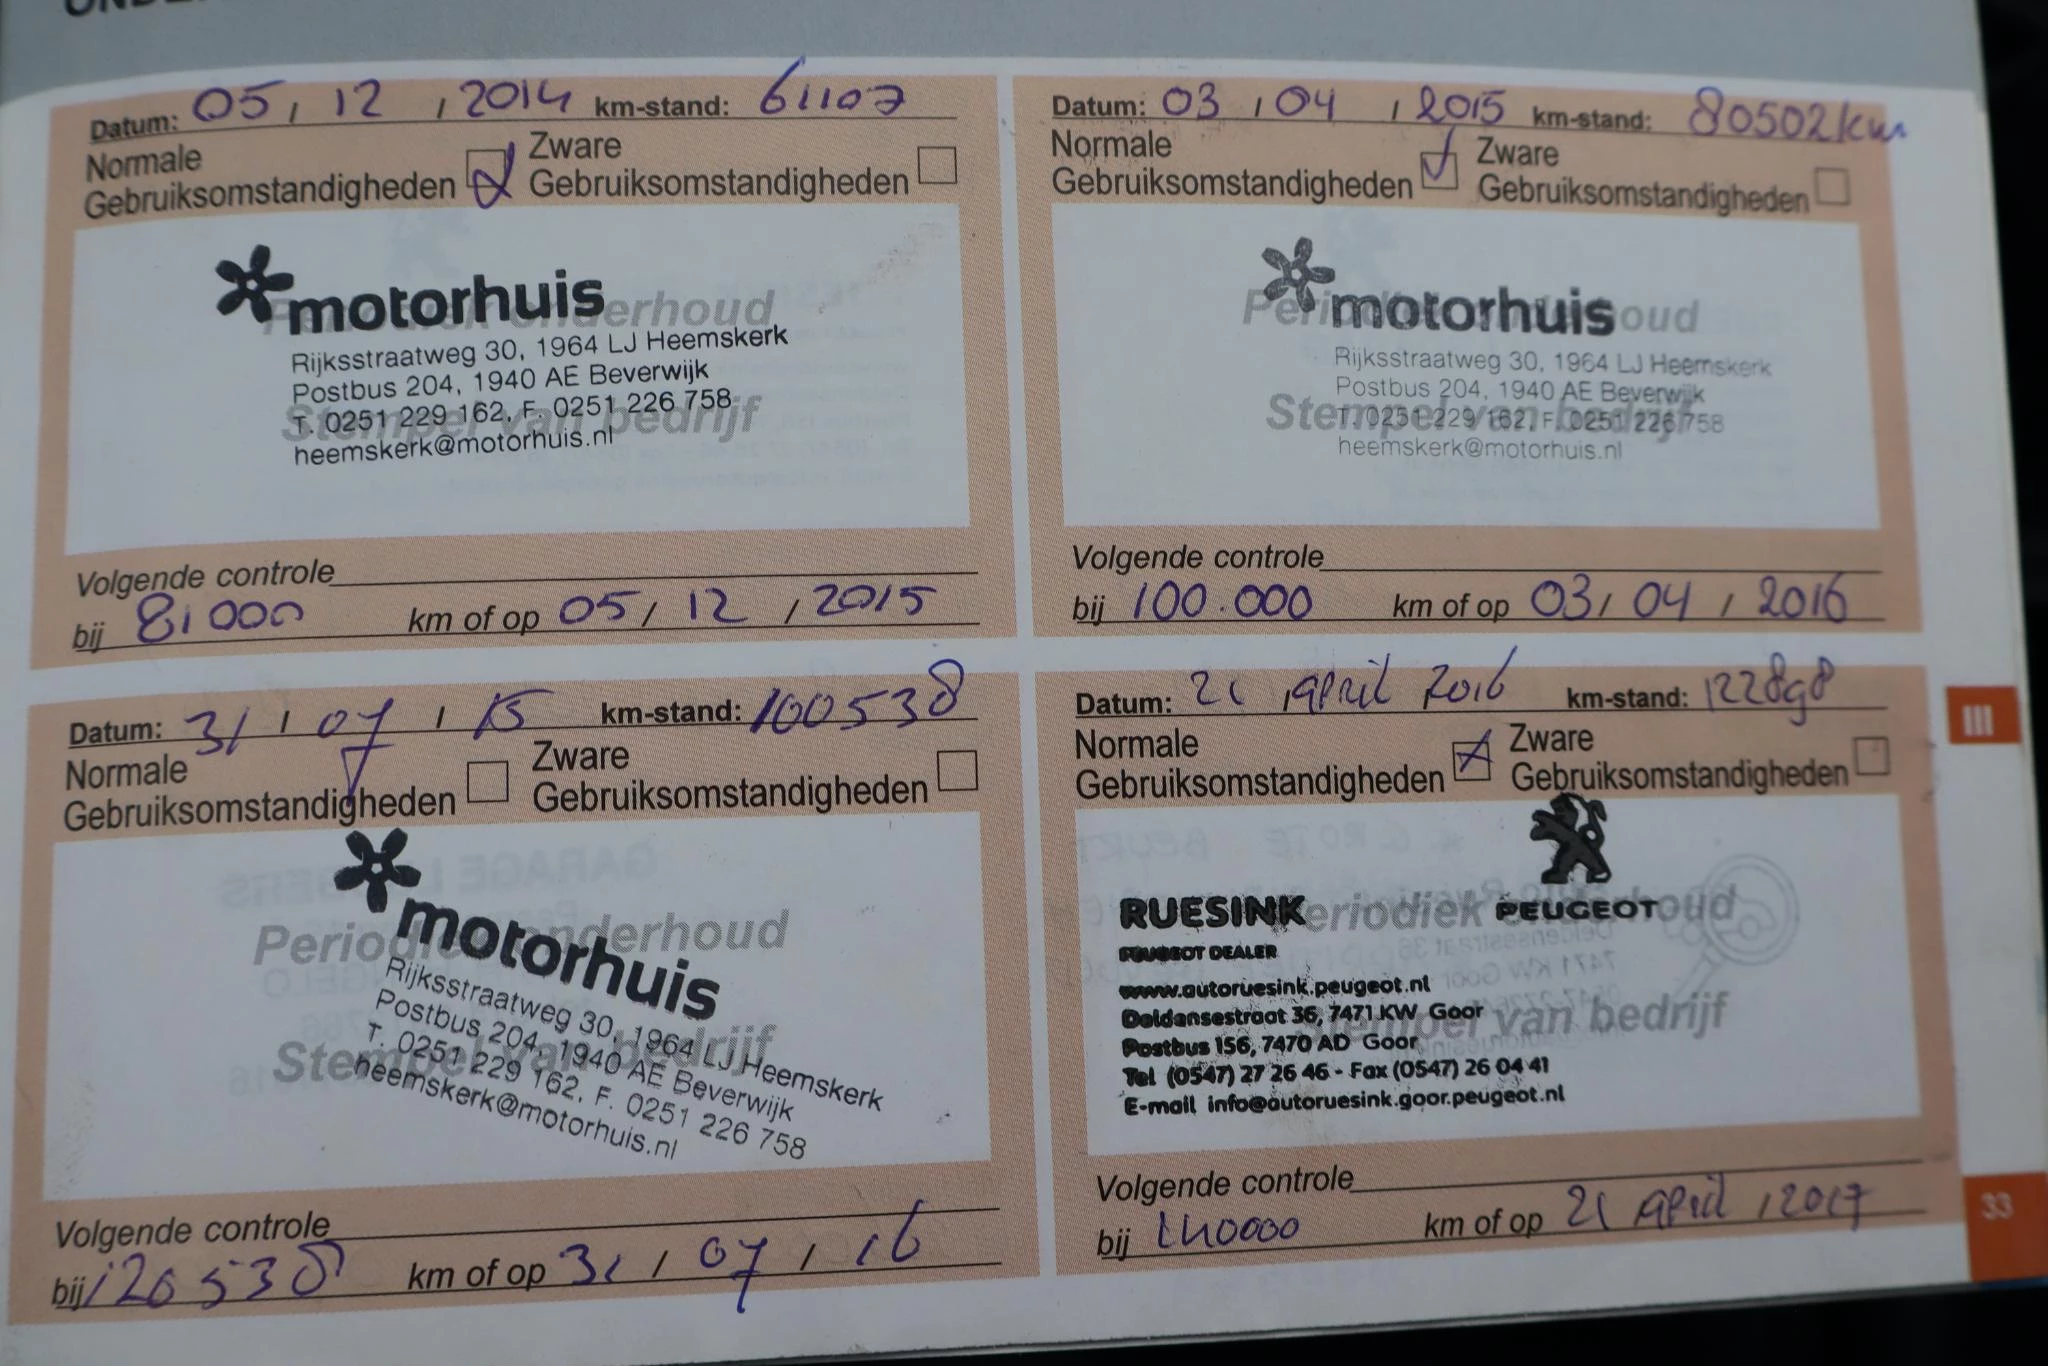 Datum: 05 / 12 / 2014 km-stand: 61107
Normale Gebruiksomstandigheden
Zware Gebruiksomstandigheden
Periodiek onderhoud
motorhuis
Rijksstraatweg 30, 1964 LJ Heemskerk
Postbus 204, 1940 AE Beverwijk
Stempel van bedrijf
T. 0251 229 162, F. 0251 226 758
heemskerk@motorhuis.nl
Volgende controle
bij 81000 km of op 05 / 12 / 2015
Datum: 03 / 04 / 2015 km-stand: 80502 km
Normale Gebruiksomstandigheden
Zware Gebruiksomstandigheden
Periodiek onderhoud
motorhuis
Rijksstraatweg 30, 1964 LJ Heemskerk
Postbus 204, 1940 AE Beverwijk
Stempel van bedrijf
T. 0251 229 162, F. 0251 226 758
heemskerk@motorhuis.nl
Volgende controle
bij 100.000 km of op 03 / 04 / 2016
Datum: 31 / 07 / 15 km-stand: 100538
Normale Gebruiksomstandigheden
Zware Gebruiksomstandigheden
Periodiek onderhoud
motorhuis
Rijksstraatweg 30, 1964 LJ Heemskerk
Postbus 204, 1940 AE Beverwijk
Stempel van bedrijf
T. 0251 229 162, F. 0251 226 758
heemskerk@motorhuis.nl
Volgende controle
bij 120538 km of op 31 / 07 / 16
Datum: 21 april 2016 km-stand: 122898
Normale Gebruiksomstandigheden
Zware Gebruiksomstandigheden
RUESINK Periodiek onderhoud PEUGEOT
PEUGEOT DEALER
www.autoruesink.peugeot.nl
Deldensestraat 36, 7471 KW Goor
Stempel van bedrijf
Postbus 156, 7470 AD Goor
Tel (0547) 27 26 46 - Fax (0547) 26 04 41
E-mail info@autoruesink.goor.peugeot.nl
Volgende controle
bij 140000 km of op 21 april / 2017
III
33